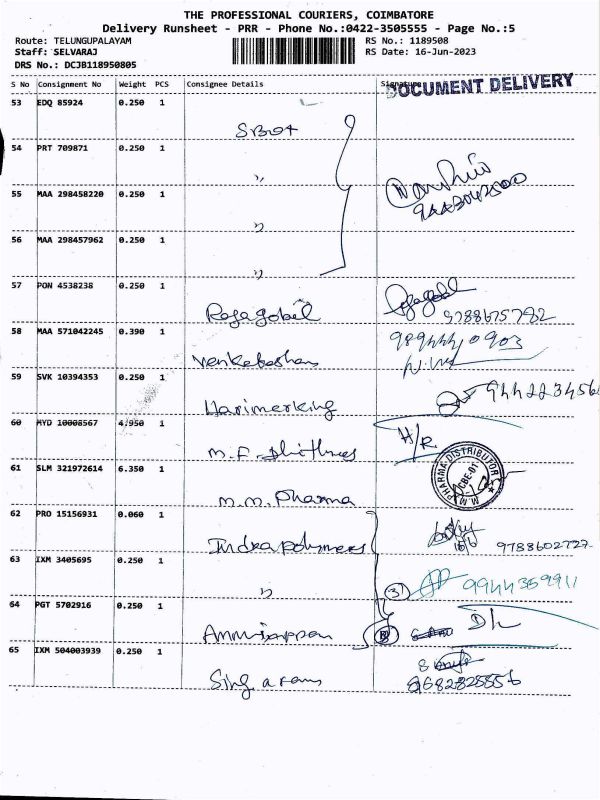 THE PROFESSIONAL COURIERS, COIMBATORE
Delivery Runsheet - PRR - Phone No.:0422-3505555 - Page No.:5
Route: TELUNGUPALAYAM RS No.: 1189508
Staff: SELVARAJ RS Date: 16-Jun-2023
DRS No.: DCJB118950805
S No Consignment No Weight PCS Consignee Details Signature
DOCUMENT DELIVERY
53 EDQ 85924 0.250 1
54 PRT 709871 0.250 1
"
55 MAA 298458220 0.250 1
"
56 MAA 298457962 0.250 1
"
57 PON 4538238 0.250 1
Rajagobil 9788675782
58 MAA 571042245 0.390 1
9894440903
59 SVK 10394353 0.250 1
Harimerking
60 MYD 10008567 4.950 1
H/R
M.F.
61 SLM 321972614 6.350 1
M.M. PHARMA DISTRIBUTOR
CBE-01
M.M. Pharma
62 PRO 15156931 0.060 1
Indrapolymers 16/6 9788602727
63 IXM 3405695 0.250 1
" 3 9944359911
64 PGT 5702916 0.250 1
65 IXM 504003939 0.250 1